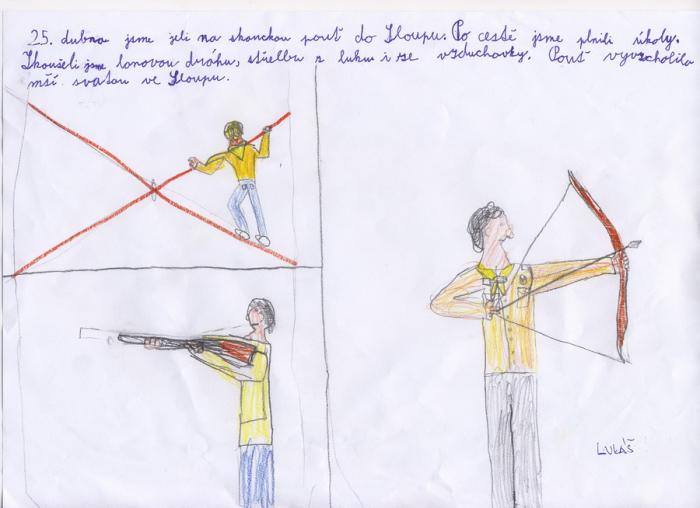 25. dubna jsme jeli na skautskou pouť do Sloupu. Po cestě jsme plnili úkoly.
Zkoušeli jsme lanovou dráhu, střelbu z luku i ze vzduchovky. Pouť vyvrcholila
mší svatou ve Sloupu.
LUKÁŠ